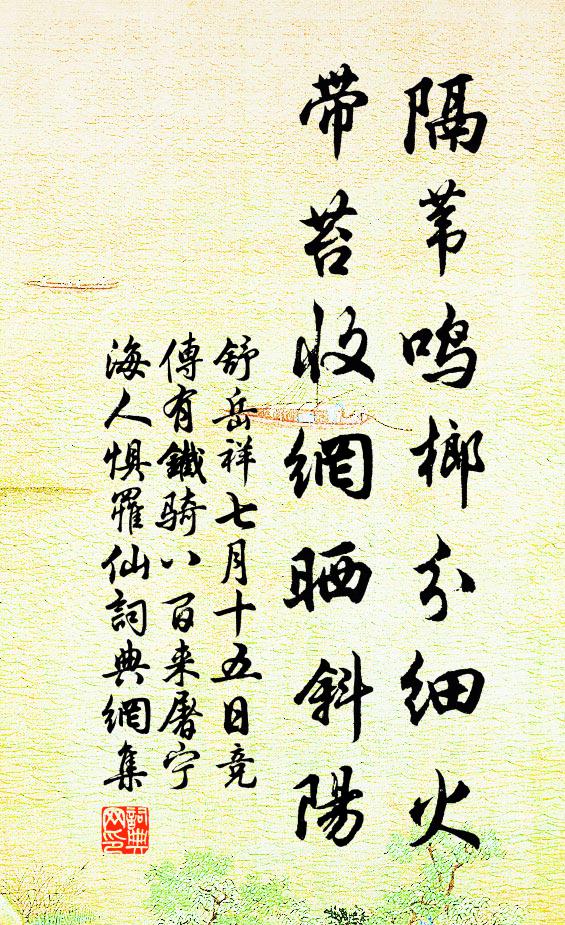 隔苇鸣榔分细火
带苔收網晒斜陽
舒岳祥七月十五日竞
傳有鐵骑八百来屠宁
海人惧罹仙詞典網集
詞典
网印